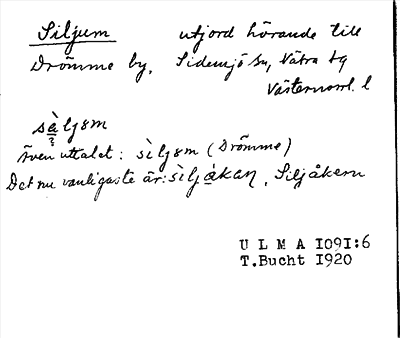 Siljum utjord hörande till
Drömme by, Sidensjö sn, Nätra tg
Västernorrl. l
sàljøm
?
Även uttalet: sìljøm (Drömme)
Det nu vanligaste är: sìljåkan, Siljåkern
U L M A 1091:6
T.Bucht 1920